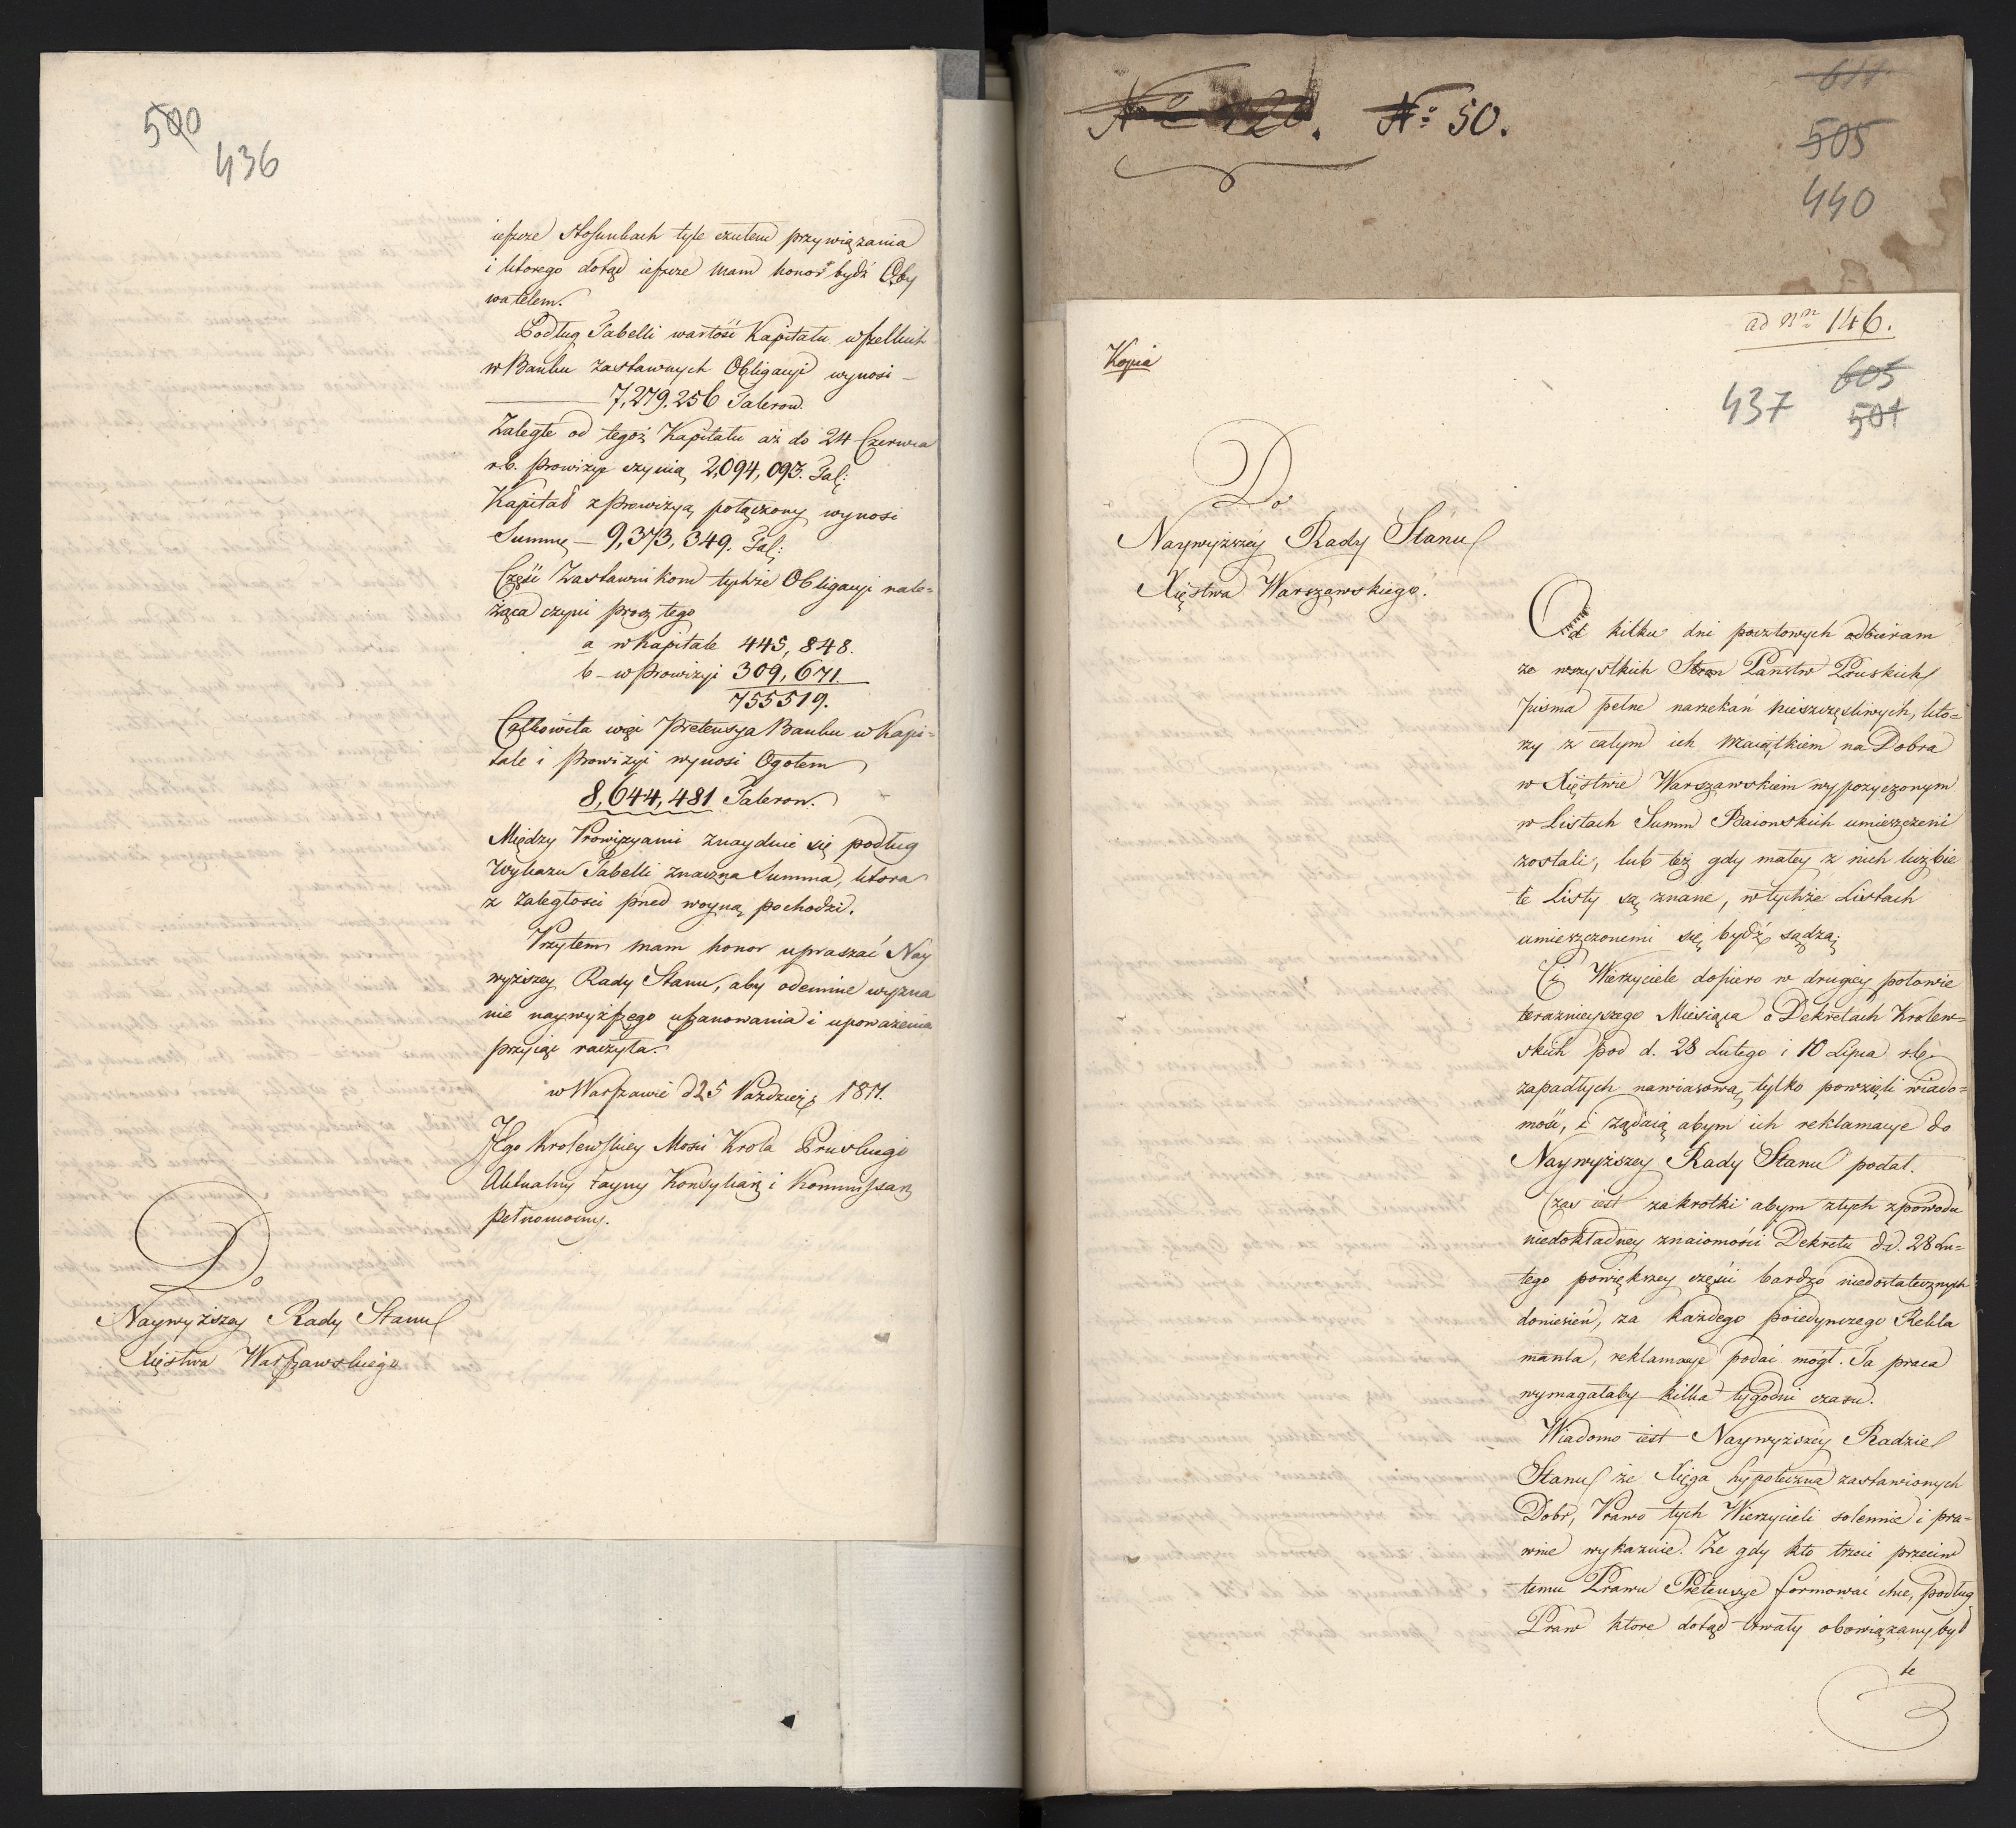 500
436
ieszcze stosunkach tyle czułem przywiązania
i ktorego dotąd ieszcze mam honor bydź Oby
watelem.
Podług Tabelli wartość Kapitału wszelkich
w Banku zastawnych Obligacyi wynosi –
7,279,256 Talerow.
Zaległe od tegoż Kapitału aż do 24 Czerwca
r.b. prowizye czynią 2,094,093. Tal:
Kapitał z Prowizyą połączony wynosi
Summę – 9,373,349. Tal:
Część Zastawnikom tychże Obligacyi nale=
żąca czyni procz tego
a w Kapitale 445,848.
b – w Prowizyi 309,671.
755519.
Całkowita więc Pretensya Banku w Kapi=
tale i Prowizyi wynosi Ogołem
8,644,481 Talerow.
Między Prowizyami znayduie się podług
Wykazu Tabelli znaczna Summa, ktora
z zaległości przed woyną pochodzi.
Przytem mam honor upraszać Nay
wyższey Rady Stanu, aby odemnie wyzna
nie naywyższego uszanowania i upoważenia
przyiąć raczyła.
w Warszawie d 25 Paździer: 1811.
JEgo Krolewskiey Mości Krola Pruskiego
Aktualny Tayny Konsyliarz i Kommissarz
pełnomocny.
Do
Naywyższey Rady Stanu
Xięstwa Warszawskiego
No 120. No 50.
611
505
440
ad Nrm 146.
Kopia
605
437
501
Do
Naywyższey Rady Stanu
Xięstwa Warszawskiego.
Od kilku dni pocztowych odbieram
ze wszystkich Stron Państw Pruskich
Pisma pełne narzekań nieszczęśliwych, kto=
rzy z całym ich Maiątkiem na Dobra
w Xięstwie Warszawskiem wypożyczonym
w Listach Summ Baionskich umieszczeni
zostali, lub też gdy małey z nich liczbie
te Listy są znane, w tychże Listach
umieszczonemi się bydź sądzą;
Ci Wierzyciele dopiero w drugiey połowie
teraznieyszego Miesiąca o Dekretach Krolew=
skich pod d. 28 Lutego i 10 Lipca r.b.
zapadłych nawiasową tylko powzięli wiado=
mość, i żądaią abym ich reklamacye do
Naywyższey Rady Stanu podał.
Czas iest zakrotki abym z tych z powodu
niedokładney znaiomości Dekretu d.d. 28 Lu=
tego powiększey części bardzo niedostatecznych
doniesień, za każdego poiedynczego Rekla
manta, reklamacye podać mógł. Ta praca
wymagałaby kilka tygodni czasu.
Wiadomo iest Naywyższey Radzie
Stanu że Xięga hypoteczna zastawionych
Dobr, Prawo tych Wierzycieli solennie i pra=
wnie wykazuie. Że gdy kto trzeci przeciw
temu Prawu Pretensye formować chce, podług
Praw ktore dotąd trwały obowiązany był
te